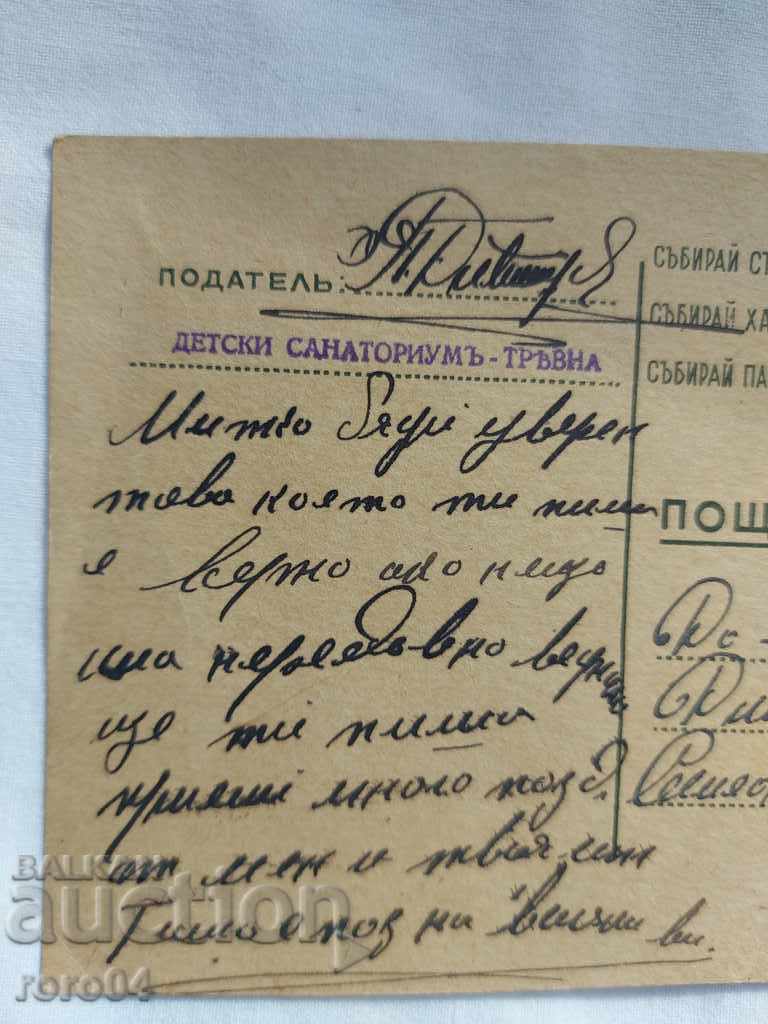 ПОДАТЕЛЬ: П. Димитр
ДЕТСКИ САНАТОРИУМЪ - ТРѢВНА
Митко бѫди уверен
това което ти пиша
е верно ако нещо
има нередовно веднага
ще ти пиша
приеми много позд.
от мен и твоя син
на всички ви.
СЪБИРАЙ СТ
СЪБИРАЙ ХА
СЪБИРАЙ ПА
ПОЩ
До
БАЛКАН
auction
roro04